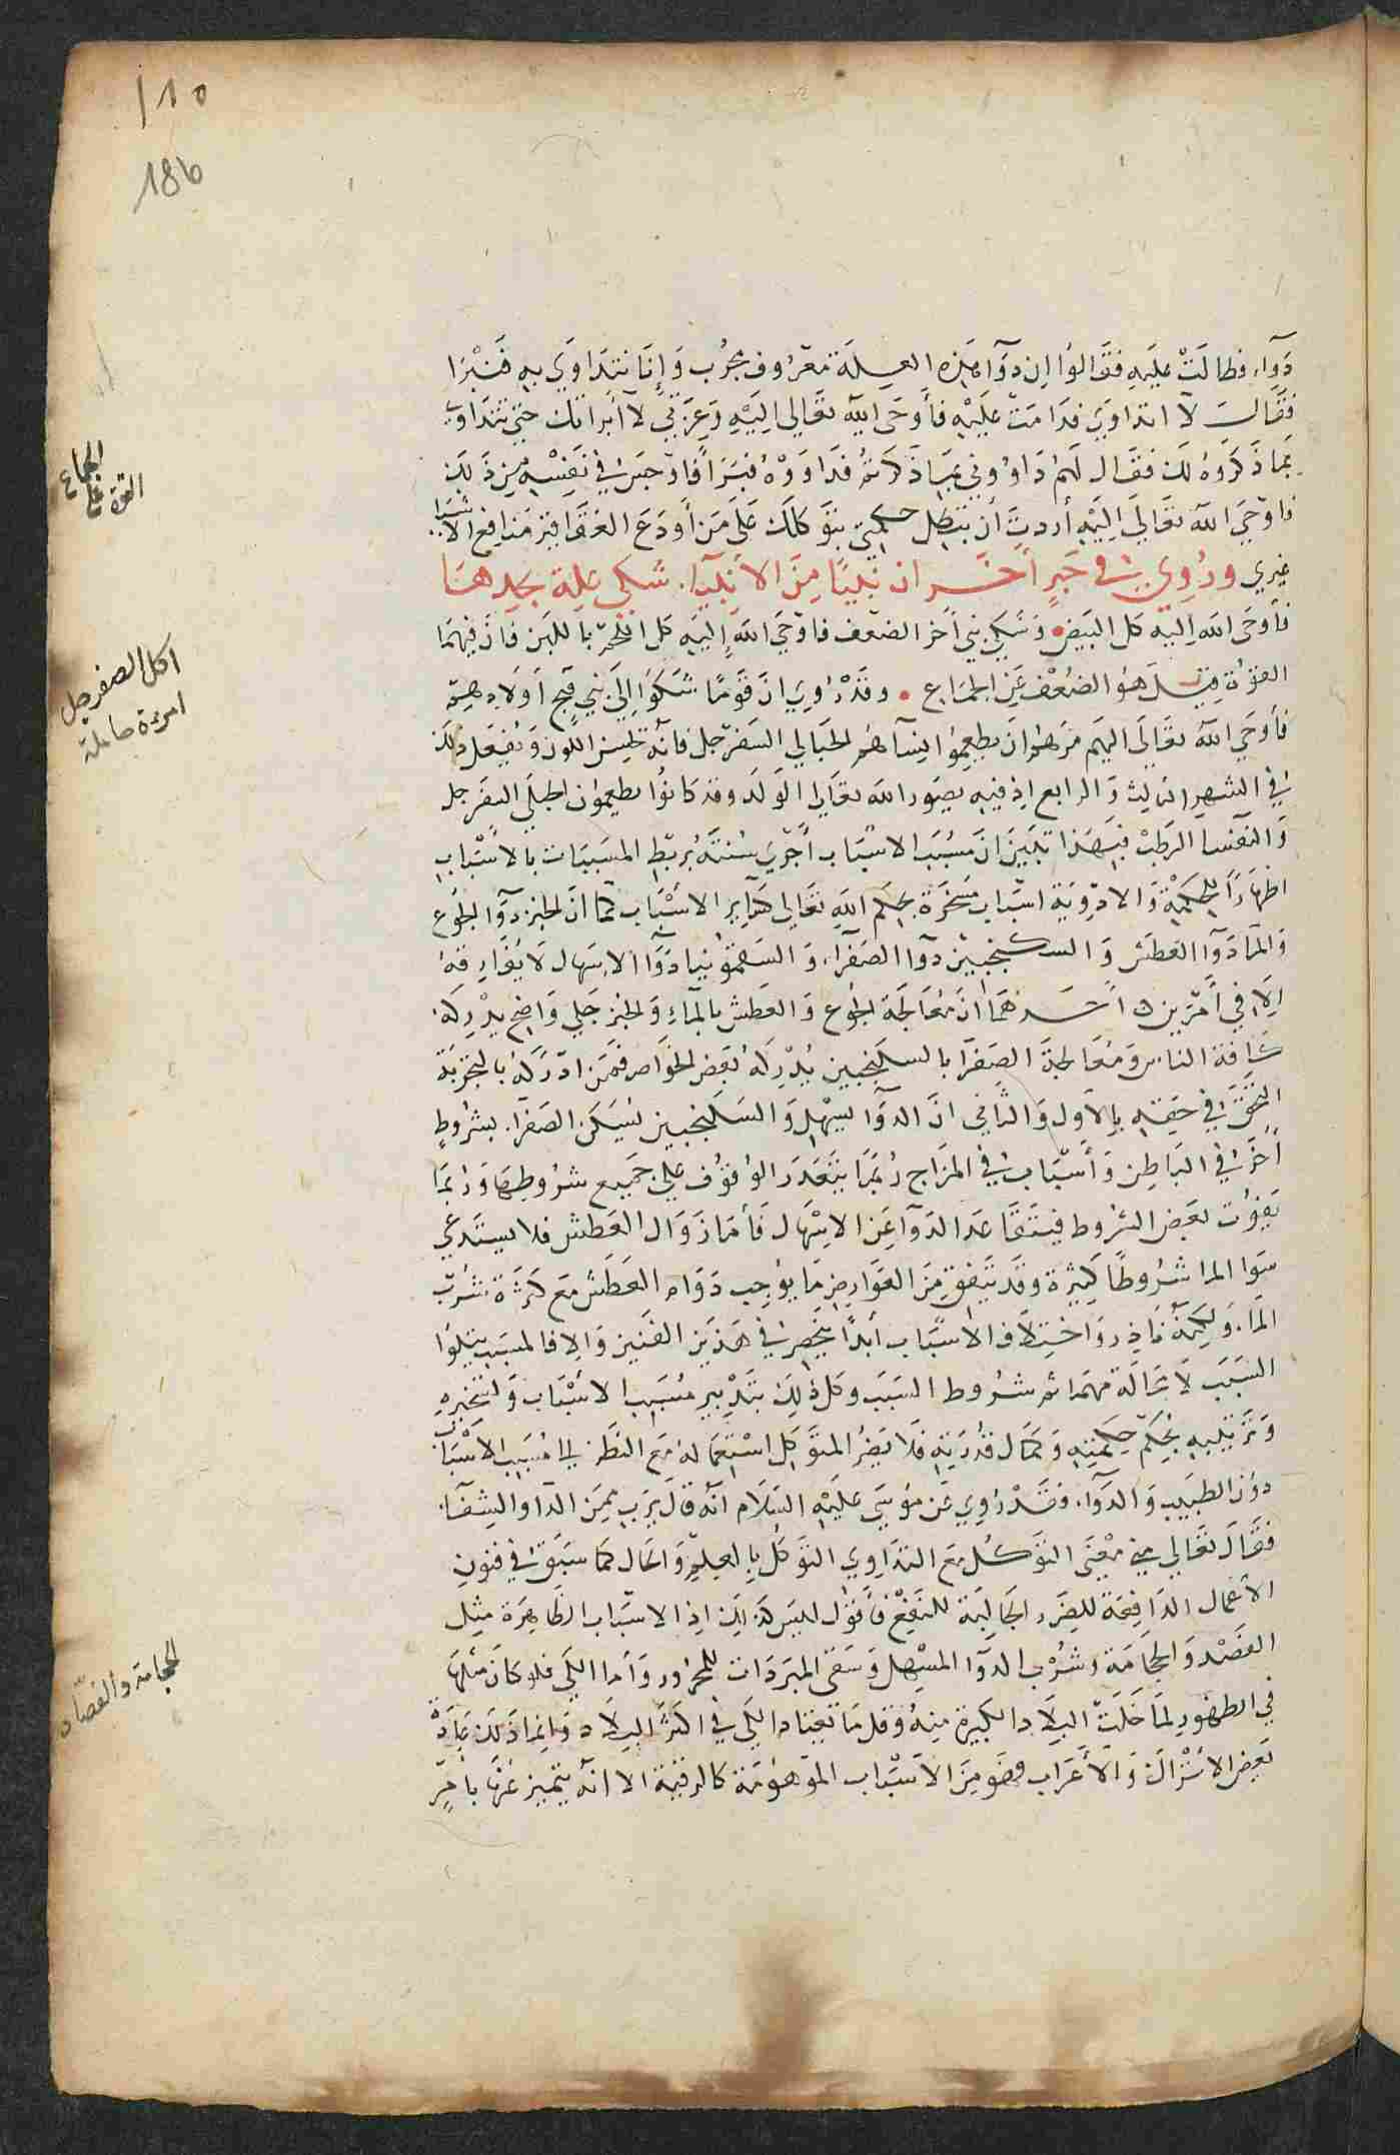 110
186
دَوَآء. فطالَتْ عليَه فقَالوُا اِن دَوَآ هَذه العِلَة مَعْرُوف مجرُب وَاِنَا نتدَاوَي به فَنَبْرَا
فقَالَ لَا اتدَاوَي فدَامَتْ عَليْه فأوحَى الله تعَالى الِيَهْ وَعِزَتي لآ ابرَاتك حتى تتدَاوَي
بمَا ذَكرَوُهُ لَك فقَال لهُم دَاوُوني بمَا ذَكرَتُم فدَاوَوْهُ فبَرَأ فاوْجَسَ في نَفسْه مِن ذَلِك
فاوْحَي الله تعَالَي اِليَهْ أردتَ أن تبْطِل حكمتي بتوَكلِك عَلَي مَن أودَعَ العَقاقِيَر مَنافِع الاشيَآ
غيري وَرُوِي في خَبرٍ أخَر ان نبيًا مِنَ الأنبيَآ. شكى عِلة يجِدهَا
فأوحَى الله اِليهْ كل البَيض. وَشَكي نبي أخَر الضعْف فاوْحَي اللهُ اِليَه كل اللحَم باللبَن فان فيهمَا
القوُة قِيلَ هوُ الضعْف عَن الجمَاع. وقدْ رُوِي ان قوَمًا شكَوَا اِلَى نبي قبْح اَوْلَادِهِم
فأوحَي الله تعَالَي اليهَم مُرهُم ان يطعِموُا نِسآهمُ الحبَالي السَفرجَل فانهُ يحسِن اللون وَيفعَل ذلك
في الشهر الثالث وَالرابع اِذ فيِه يصَور الله تعَالَى الوَلَد وقد كانوُا يطعِموُن الحبلَي السَفرجل
وَالنفسَا الرطَبْ فبَهَذا تبَيَن انَ مُسَبَب الاسْبَاب أجْرَي سُنتَهُ برَبطِ المسَببَات بالأسْبَابِ
اظهَارًا للِحكمَةْ وَالادْوِيَة اسْبَاب مسَخرَة بحكم الله تعَالي كسَايِر الأسْبَاب كمَا ان الخبز دوَآ الجوُع
وَالمَآ دَوَآ العَطش وَالسكنجبيْن دوَآ الصَفرَآ. وَالسقمُونيا دَوَآ الاسْهَال لَا يفَارِقهُ
اِلَا في أمْرَين احَدهمَا انَ مُعَالجَة الجوُع وَالعَطش بالمَآءِ وَالخبز جَلي وَاضِح يُدْرِكهُ
كافة الناس وَمُعَالجة الصَفرَآ بالسكنجبين يدْرِكهُ بعَض الخوَاص فمَن ادْرَكهُ بالتجرَبة
التحَق في حَقِه بالأول وَالثاني انَ الدوَآ يسْهِل وَالسَكنجبين يُسَكن الصَفرَآ. بشرُوطٍ
أخرَ في البَاطِن وَأسْبَاب في المزَاج رُبمَا يتعَذر الوُقوُف علي جمَيع شرُوطِهَا وَرُبمَا
يفوُت بعَض الشرُوط فيتقَاعَد الدَوَآ عَن الاسْهَال فأمَا زوَال العَطش فلا يستَدعي
سوَا المآ شرُوطًا كثيرَة وقدْ يتفق مِن العَوَارِض مَا يوُجب دَوَام العَطش مَع كثرَة شرُب
المَآ. وَلكِنهُ نادِر وَاختِلَاف الاسْبَاب أبدًا ينحصِر في هَذيَن الفنيَن وَاِلا فالمسَبب يتلوُا
السَبَب لَا محَالَة مهمَا تم شرُوط السَبَب وكل ذلِك بتَدْبير مُسَبب الاسْبَاب وَتسخيرهِ
وَترَتيبهِ بحكم حِكمَتِهِ وَكمَال قدُرَتِهِ فلَا يضُر المتوَكِل اسْتِعمَالهُ مَع النظَر الى مُسَبب الاسْبَاب
دوُن الطبيب وَالدَوَآ. فقدْ رُوِي عَن موُسَي عليَه السَلَام انهُ قال يرَب مِمَن الدَآ وَالشِفَا
فقالَ تعَالي مِني معْنَى التوَكُل مَع التدَاوِي التوَكل بالعِلمْ وَالحَال كمَا سَبَق في فنون
الأعمَال الدَافِعَة للِضرَر الجَالِبَة للنفَع فأقول ليسَ كذلِك اِذ الاسْبَاب الظَاهِرَة مِثل
الفصَد وَالحجَامَة وَشرُب الدوَآ المسْهِل وَسقَى المبَرَدَات للمَحرُور وَأما الكي فلو كان مثلَهَا
في الظهور لمَا خلَت البلَاد الكبيرَة مِنهُ وَقل مَا يعتاد الكي في اكثر البلَاد وَاِنمَا ذَلِك عَادَةْ
بعَض الاترَاك وَالاعَرَاب فهَو مِن الاسْبَاب الموَهوُمَة كالرقيَة الا انهُ يتمَيز عَنهَا باَمْرٍ
الجماع
القوة على
اكل الصفرجل
امرءة حاملة
الحجامة والفصاد